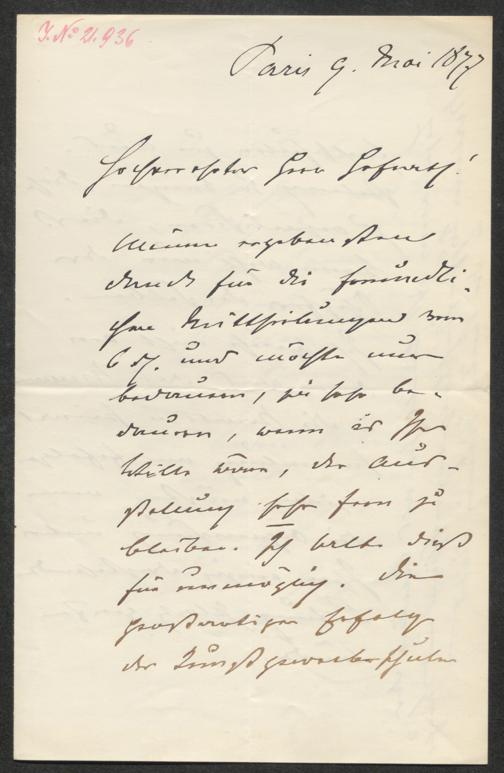 J. No 21.936
Paris 9. Mai 1877
Hochverehrter Herr Hofrath!
Meinen ergebensten
Dank für die freundli-
chen Mittheilungen vom
6 d. und möchte nur
bedauern, ja sehr be-
dauern, wenn es Ihr
Wille wäre, der Aus-
stellung sehr fern zu
bleiben. Ich halte dieß
für unmöglich. Die
großartigen Erfolge
der Kunstgewerbeschule